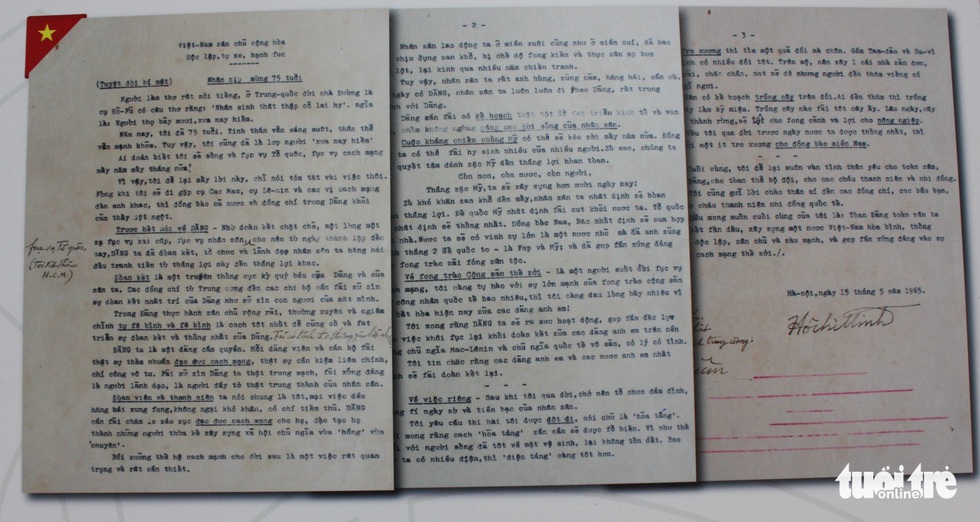 Việt-Nam zân chủ cộng hòa
Độc lập, tự zo, hạnh fúc
(Tuyệt đối bí mật) Nhân zịp mừng 75 tuổi
Người làm thơ rất nổi tiếng, ở Trung-quốc đời nhà Đường là
cụ Đỗ-Fủ có câu thơ rằng: 'Nhân sinh thất thập cổ lai hy'. nghĩa
là: Người thọ bảy mươi, xưa nay hiếm.
Năm nay, tôi đã 75 tuổi. Tinh thần vẫn sáng suốt, thân thể
vẫn mạnh khỏe. Tuy vậy, tôi cũng đã là lớp người 'xưa nay hiếm'
Ai đoán biết tôi sẽ sống và fục vụ Tổ quốc, fục vụ cách mạng
mấy năm mấy tháng nữa!
Vì vậy, tôi để lại mấy lời này, chỉ nói tóm tắt vài việc thôi.
Fòng khi tôi sẽ đi gặp cụ Các Mác, cụ Lê-nin và các vị cách mạng
đàn anh khác, thì đồng bào cả nước và đồng chí trong Đảng khỏi
cảm thấy đột ngột.
Trước hết nói về ĐẢNG - Nhờ đoàn kết chặt chẽ, một lòng một
zạ fục vụ zai cấp, fục vụ nhân zân, cho nên từ ngày thành lập đến
nay, ĐẢNG ta đã đoàn kết, tổ chức và lãnh đạo nhân zân ta hăng hái
đấu tranh tiến từ thắng lợi này đến thắng lợi khác.
fục vụ Tổ quốc,
H.C.M)
Đoàn kết là một truyền thống cực kỳ quý báu của Đảng và của
zân ta. Các đồng chí từ Trung ương đến các chi bộ cần fải zữ zìn
sự đoàn kết nhất trí của Đảng như zữ zìn con ngươi của mắt mình.
Trong Đảng thực hành zân chủ rộng rãi, thường xuyên và nghiêm
chỉnh tự fê bình và fê bình là cách tốt nhất để củng cố và fát
triển sự đoàn kết và thống nhất của Đảng.
ĐẢNG ta là một đảng cầm quyền. Mỗi đảng viên và cán bộ fải
thật sự thấm nhuần đạo đức cách mạng, thật sự cần kiệm liêm chính,
chí công vô tư. Fải zữ zìn Đảng ta thật trong sạch, fải xứng đáng
là người lãnh đạo, là người đầy tớ thật trung thành của nhân zân.
Đoàn viên và thanh niên ta nói chung là tốt, mọi việc đều
hăng hái xung fong, không ngại khó khăn, có chí tiến thủ. ĐẢNG
cần fải chăm lo záo zục đạo đức cách mạng cho họ, đào tạo họ
thành những người thừa kế xây zựng xã hội chủ nghĩa vừa 'hồng' vừa
'chuyên'.
Bồi zưỡng thế hệ cách mạng cho đời sau là một việc rất quan
trọng và rất cần thiết.
- 2 -
Nhân zân lao động ta ở miền xuôi cũng như ở miền núi, đã bao
chịu đựng zan khổ, bị chế độ fong kiến và thực zân áp bức
lột, lại kinh qua nhiều năm chiến tranh.
Tuy vậy, nhân zân ta rất anh hùng, zũng cảm, hăng hái, cần cù.
ngày có ĐẢNG, nhân zân ta luôn luôn đi theo ĐẢNG, rất trung
nh với Đảng.
Đảng cần fải có kế hoạch thật tốt để fát triển kinh tế và văn
nhằm không ngừng nâng cao đời sống của nhân zân.
Cuộc kháng chiến chống Mỹ có thể sẽ kéo zài mấy năm nữa. Đồng
ta có thể fải hy sinh nhiều của nhiều người. Zù sao, chúng ta
quyết tâm đánh zặc Mỹ đến thắng lợi hoàn toàn.
Còn non, còn nước, còn người.
Thắng zặc Mỹ, ta sẽ xây zựng hơn mười ngày nay!
Zù khó khăn zan khổ đến mấy, nhân zân ta nhất định sẽ hoàn
n thắng lợi. Đế quốc Mỹ nhất định fải cút khỏi nước ta. Tổ quốc
nhất định sẽ thống nhất. Đồng bào Nam, Bắc nhất định sẽ sum họp
nhà. Nước ta sẽ có vinh zự lớn là một nước nhỏ mà đã anh zũng
thắng 2 đế quốc to - là Fáp và Mỹ; và đã góp fần xứng đáng
fong trào zải fóng zân tộc.
Về fong trào Cộng sản thế zới - là một người suốt đời fục vụ
h mạng, tôi càng tự hào với sự lớn mạnh của fong trào cộng sản
công nhân quốc tế bao nhiêu, thì tôi càng đau lòng bấy nhiêu vì
bất hòa hiện nay của các đảng anh em!
Tôi mong rằng ĐẢNG ta sẽ ra sức hoạt động, góp fần đắc lực
việc khôi fục lại khối đoàn kết zữa các đảng anh em trên nền
chủ nghĩa Mác-Lênin và chủ nghĩa quốc tế vô sản, có lý có tình.
Tôi tin chắc rằng các đảng anh em và các nước anh em nhất
nh sẽ fải đoàn kết lại.
- - -
Về việc riêng - Sau khi tôi qua đời, chớ nên tổ chức đám đình,
fí ngày zờ và tiền bạc của nhân zân.
Tôi yêu cầu thi hài tôi được đốt đi, nói chữ là 'hỏa táng'.
i mong rằng cách 'hỏa táng' zần zần sẽ được fổ biến. Vì như thế
i với người sống đã tốt về mặt vệ sinh, lại không tốn đất. Bao
ta có nhiều điện, thì 'điện táng' càng tốt hơn.
- 3 -
Tro xương thì tìm một quả đồi mà chôn. Gần Tam-đảo và Ba-vì
có nhiều đồi tốt. Trên mộ, nên xây 1 cái nhà zản đơn,
chắc chắn, mát mẻ để những người đến thăm viếng có
ỉ ngơi.
Nên có kế hoạch trồng cây trên đồi. Ai đến thăm thì trồng
ây làm kỷ niệm. Trồng cây nào fải tốt cây ấy. Lâu ngày, cây
thành rừng, sẽ tốt cho fong cảnh và lợi cho nông nghiệp.
Nếu tôi qua đời trước ngày nước ta được thống nhất, thì
một ít tro xương cho đồng bào miền Nam.
- - -
Cuối cùng, tôi để lại muôn vàn tình thân yêu cho toàn zân,
Đảng, cho toàn thể bộ đội, cho các cháu thanh niên và nhi đồng.
Tôi cũng gửi lời chào thân ái đến các đồng chí, các bầu bạn,
cháu thanh niên nhi đồng quốc tế.
iều mong muốn cuối cùng của tôi là: Toàn Đảng toàn zân ta
kết fấn đấu, xây zựng một nước Việt-Nam hòa bình, thống
độc lập, zân chủ và zàu mạnh, và góp fần xứng đáng vào sự
cách mạng thế zới./.
Hà-nội, ngày 15 tháng 5 năm 1965.
Hồ Chí Minh
tuổi trẻ
online